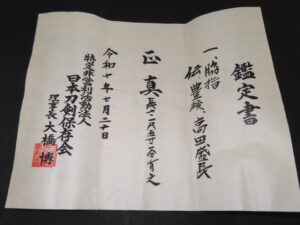 鑑定書
一、脇指
伝 豊後 高田盛氏
正真 長サ一尺五寸
令和七年七月二十日
特定非営利活動法人
日本刀剣保存会
理事長 大橋 博